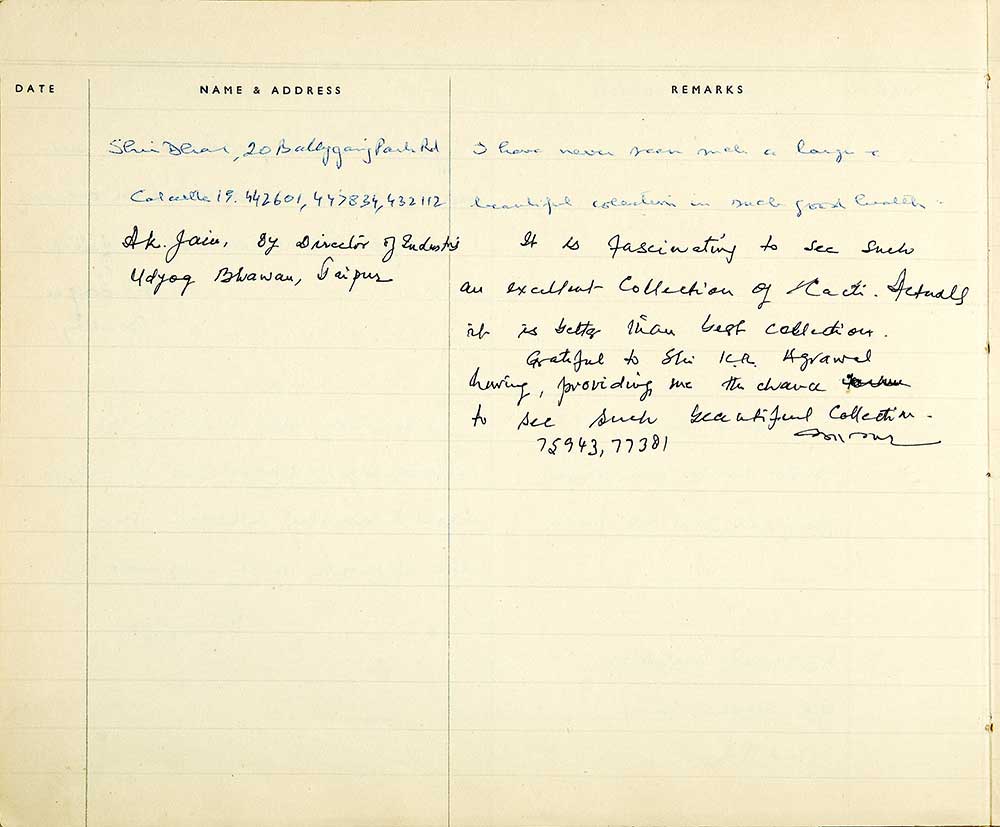 DATE NAME & ADDRESS REMARKS
20 Ballygang Park Rd
Calcutta 19. 442601, 447834, 432112
I have never seen such a large &
beautiful colection in such good health.
A.K. Jain, Dy Director of Industries
Udyog Bhawan, Jaipur
It is fascinating to see such
an excellent Collection of Cacti. Actually
it is better than best collection.
Grateful to Shri K.R. Agrawal
having, providing me the chance
to see such beautiful Collection.
75943, 77381